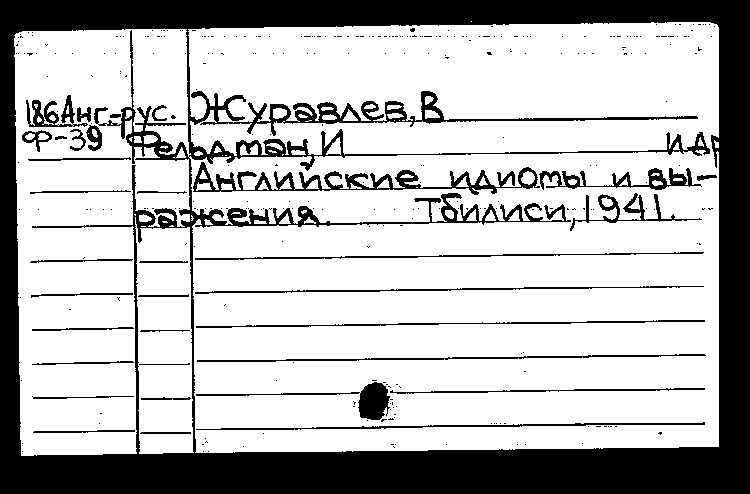 186Анг-рус. Журавлев,В
Ф-39 Фельдман,И и др
Английские идиомы и вы-
ражения. Тбилиси,1941.